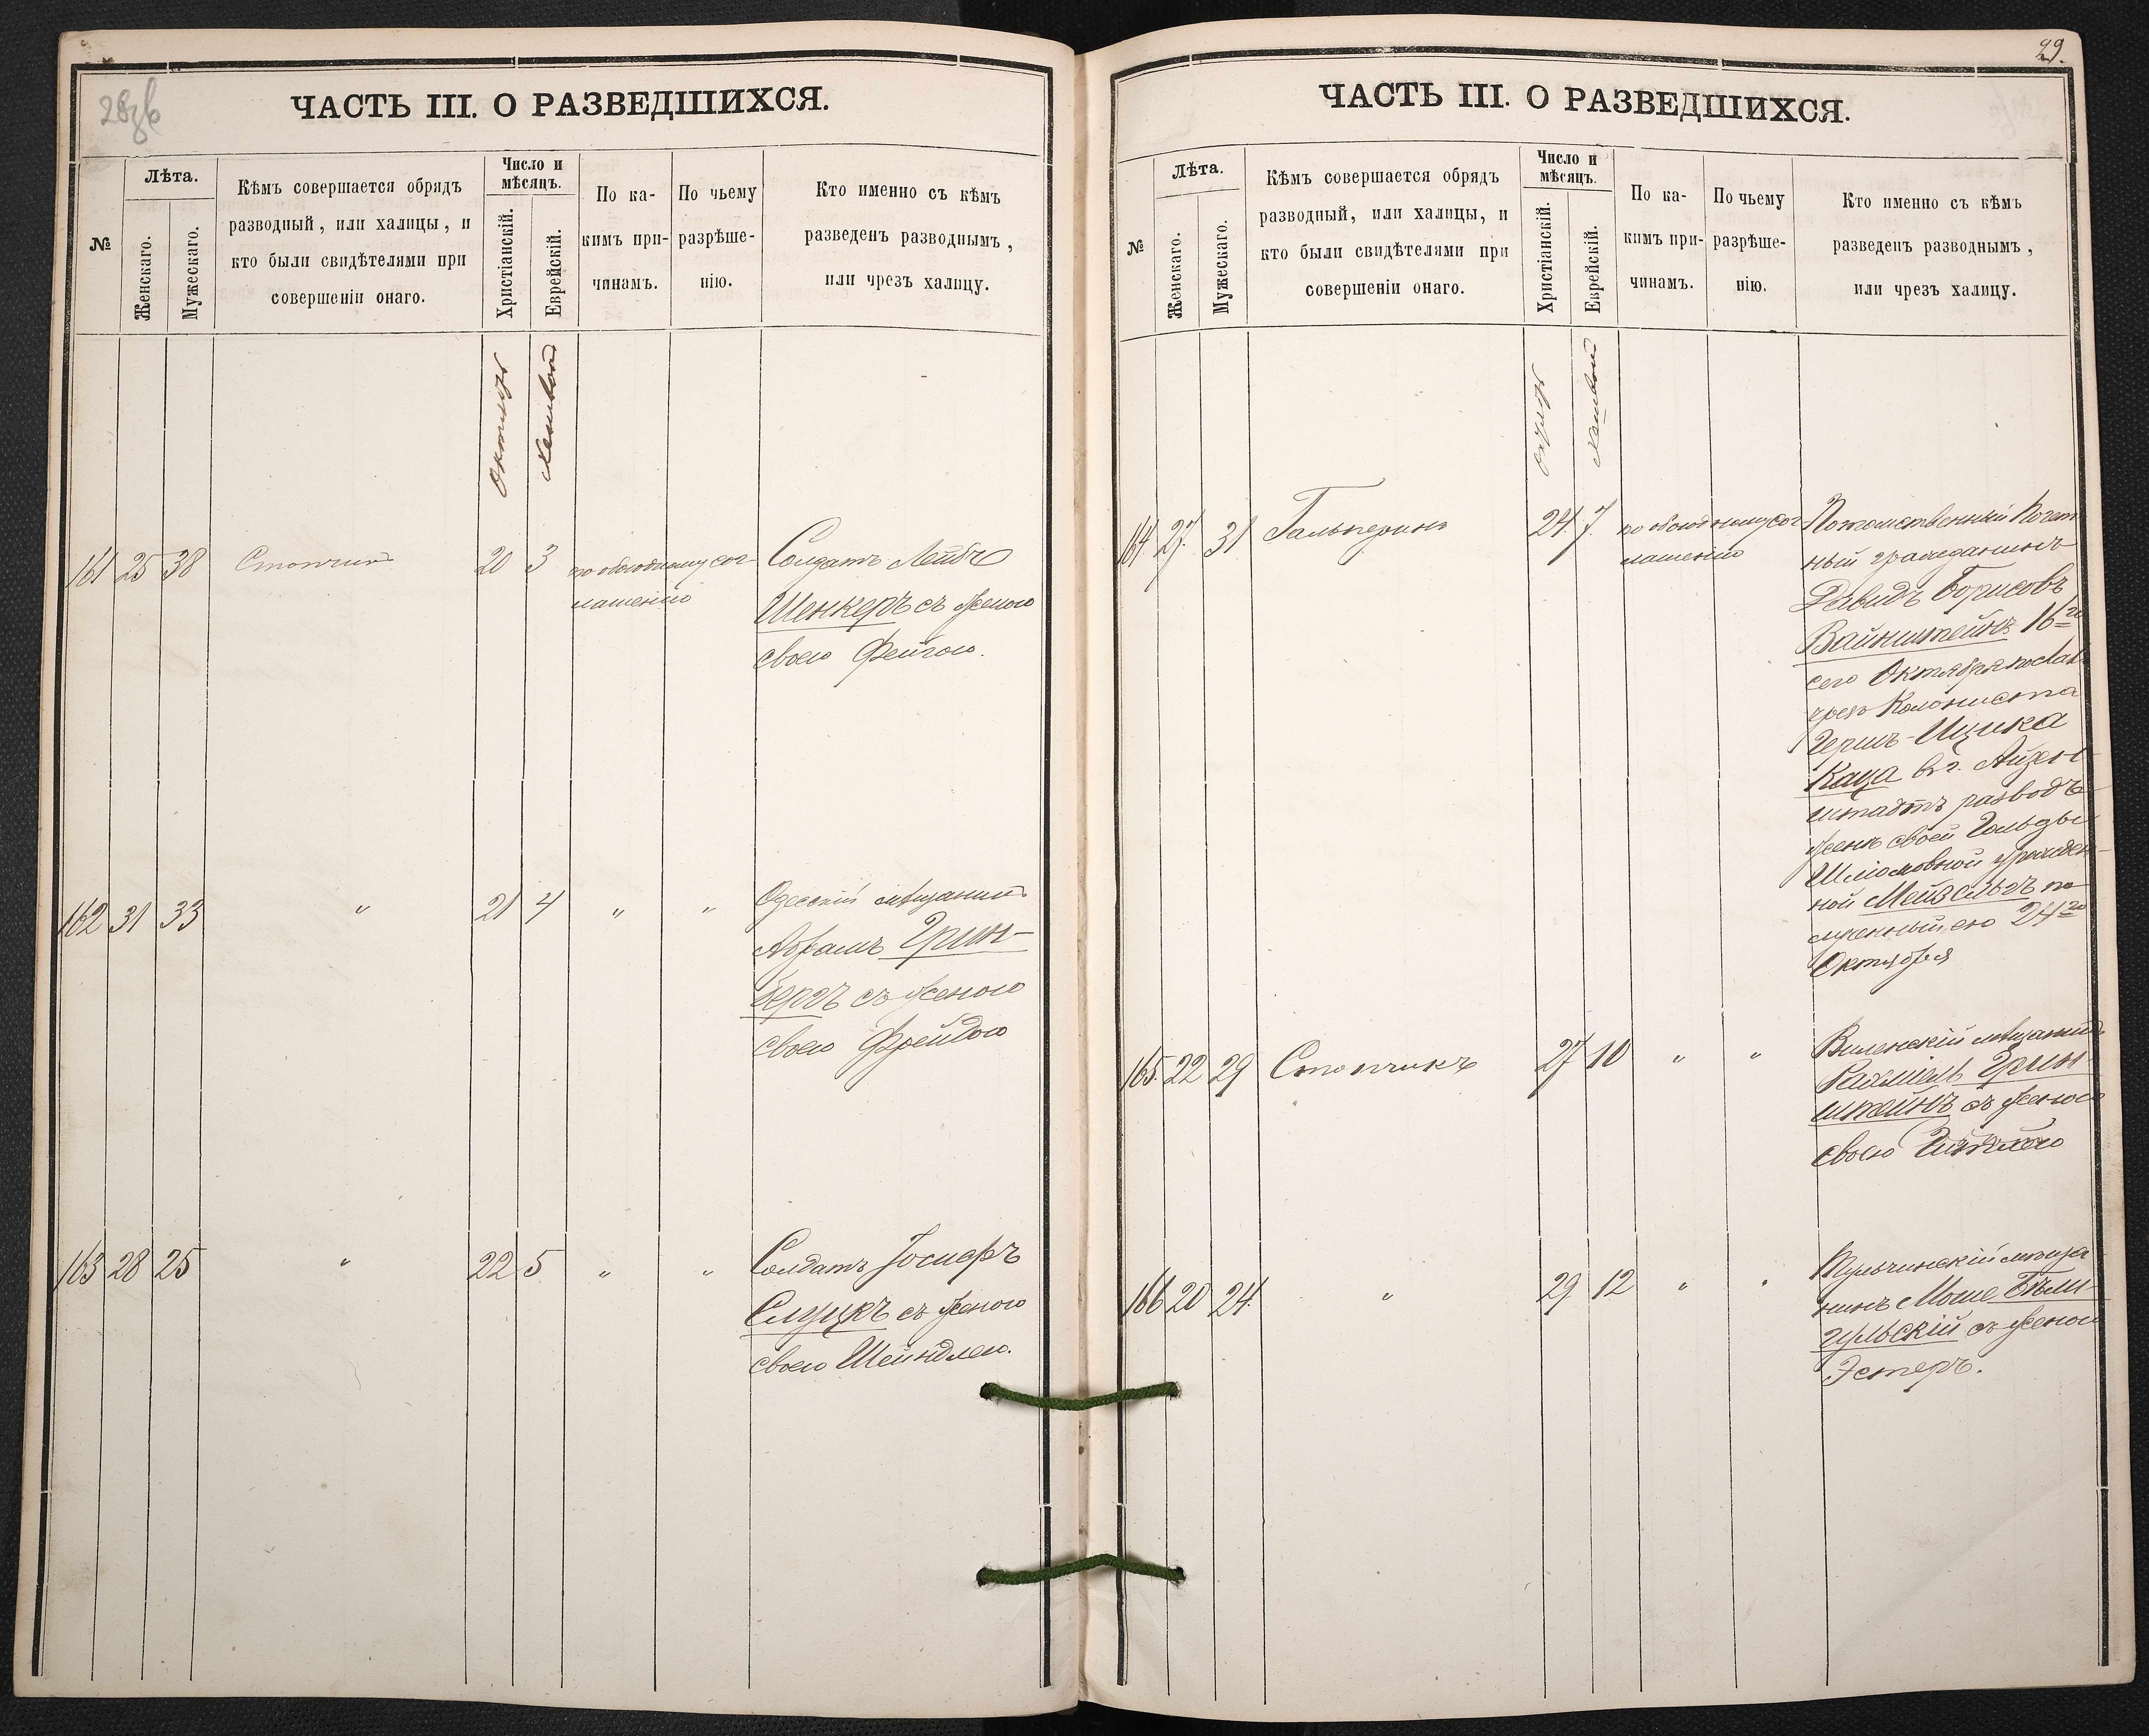 ЧАСТЬ III. О РАЗВЕДШИХСЯ.
№
Лѣта.
Женскаго.
Мужескаго.
Кѣмъ совершается обрядъ
разводный, или халицы, и
кто были свидѣтелями при
совершеніи онаго.
Число и
мѣсяцъ.
Христіанскій.
Еврейскій.
По ка-
кимъ при-
чинамъ.
По чьему
разрѣше-
нію.
Кто именно съ кѣмъ
разведенъ разводнымъ,
или чрезъ халицу.
Октябрь
Хешвон
161 25 38 Стопчикъ 20 3 по обоюдному сог-
лашенію
Солдатъ Лейбъ
Шенкеръ съ женою
своею Фейгою.
162 31 33 " 21 4 " "
Одесскій мѣщанинъ
Абрамъ Грин-
бергъ съ женою
своею Фрейдою
163 28 25 " 22 5 " "
Солдатъ Іосифъ
Слуцкъ съ женою
своею Шейндлею.
29.
ЧАСТЬ III. О РАЗВЕДШИХСЯ.
№
Лѣта.
Женскаго.
Мужескаго.
Кѣмъ совершается обрядъ
разводный, или халицы, и
кто были свидѣтелями при
совершеніи онаго.
Число и
мѣсяцъ.
Христіанскій.
Еврейскій.
По ка-
кимъ при-
чинамъ.
По чьему
разрѣше-
нію.
Кто именно съ кѣмъ
разведенъ разводнымъ,
или чрезъ халицу.
Хешвон
164 27. 31 Гальперинъ 24. 7. по обоюдному сог-
лашенію
Потомственный Почет
ный гражданинъ
Давидъ Борисовъ
Вайнштейнъ 16го
сего Октября послал
чрезъ Колониста
Герш-Ицика
Каца въ г. Айзен
штадтъ разводъ
женѣ своей Гольды
Шліомовной урожден-
ной Мейзельсъ по
лученный ею 24го
Октября
165. 22 29 Стопчикъ 27 10 " "
Виленскій мѣщанинъ
Рахміель Грин-
штейнъ съ женою
своею
166 20 24. " 29 12 " "
Тульчинскій мѣща
нинъ Моше Бѣли-
гульскій съ женою
Эстеръ.